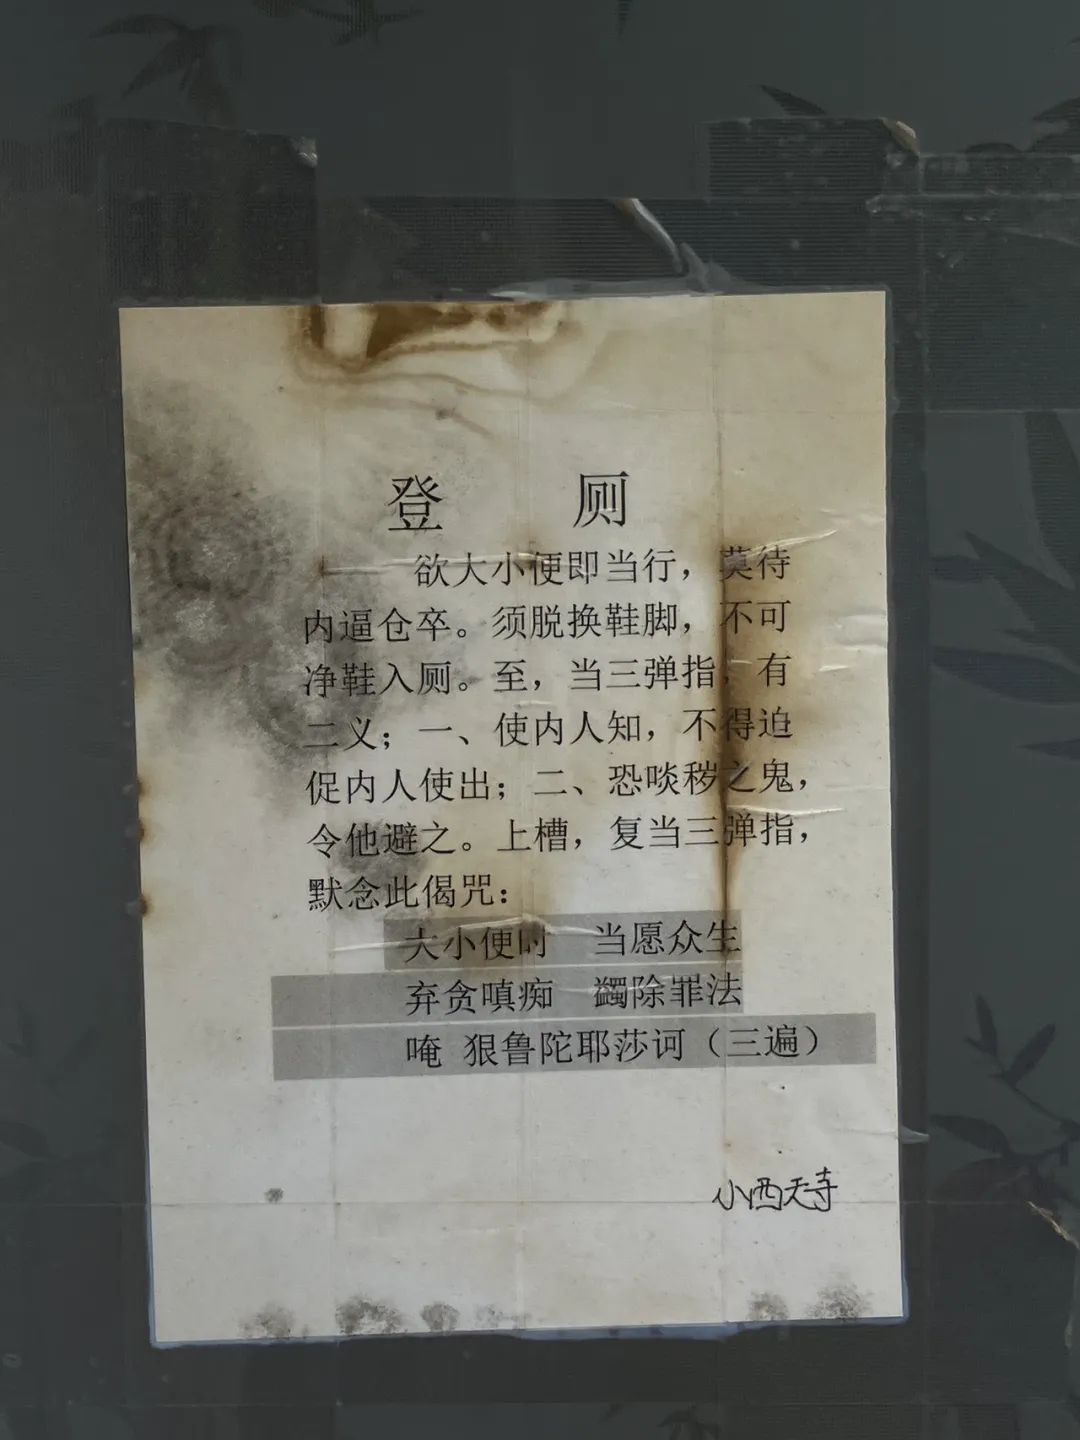 登 厕
欲大小便即当行，莫待
内逼仓卒。须脱换鞋脚，不可
净鞋入厕。至，当三弹指，有
二义；一、使内人知，不得迫
促内人使出；二、恐啖秽之鬼，
令他避之。上槽，复当三弹指，
默念此偈咒：
大小便时 当愿众生
弃贪嗔痴 蠲除罪法
唵 狠鲁陀耶莎诃（三遍）
小西天寺